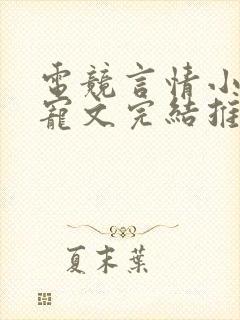 電競言情小
寵文完結推
夏末葉